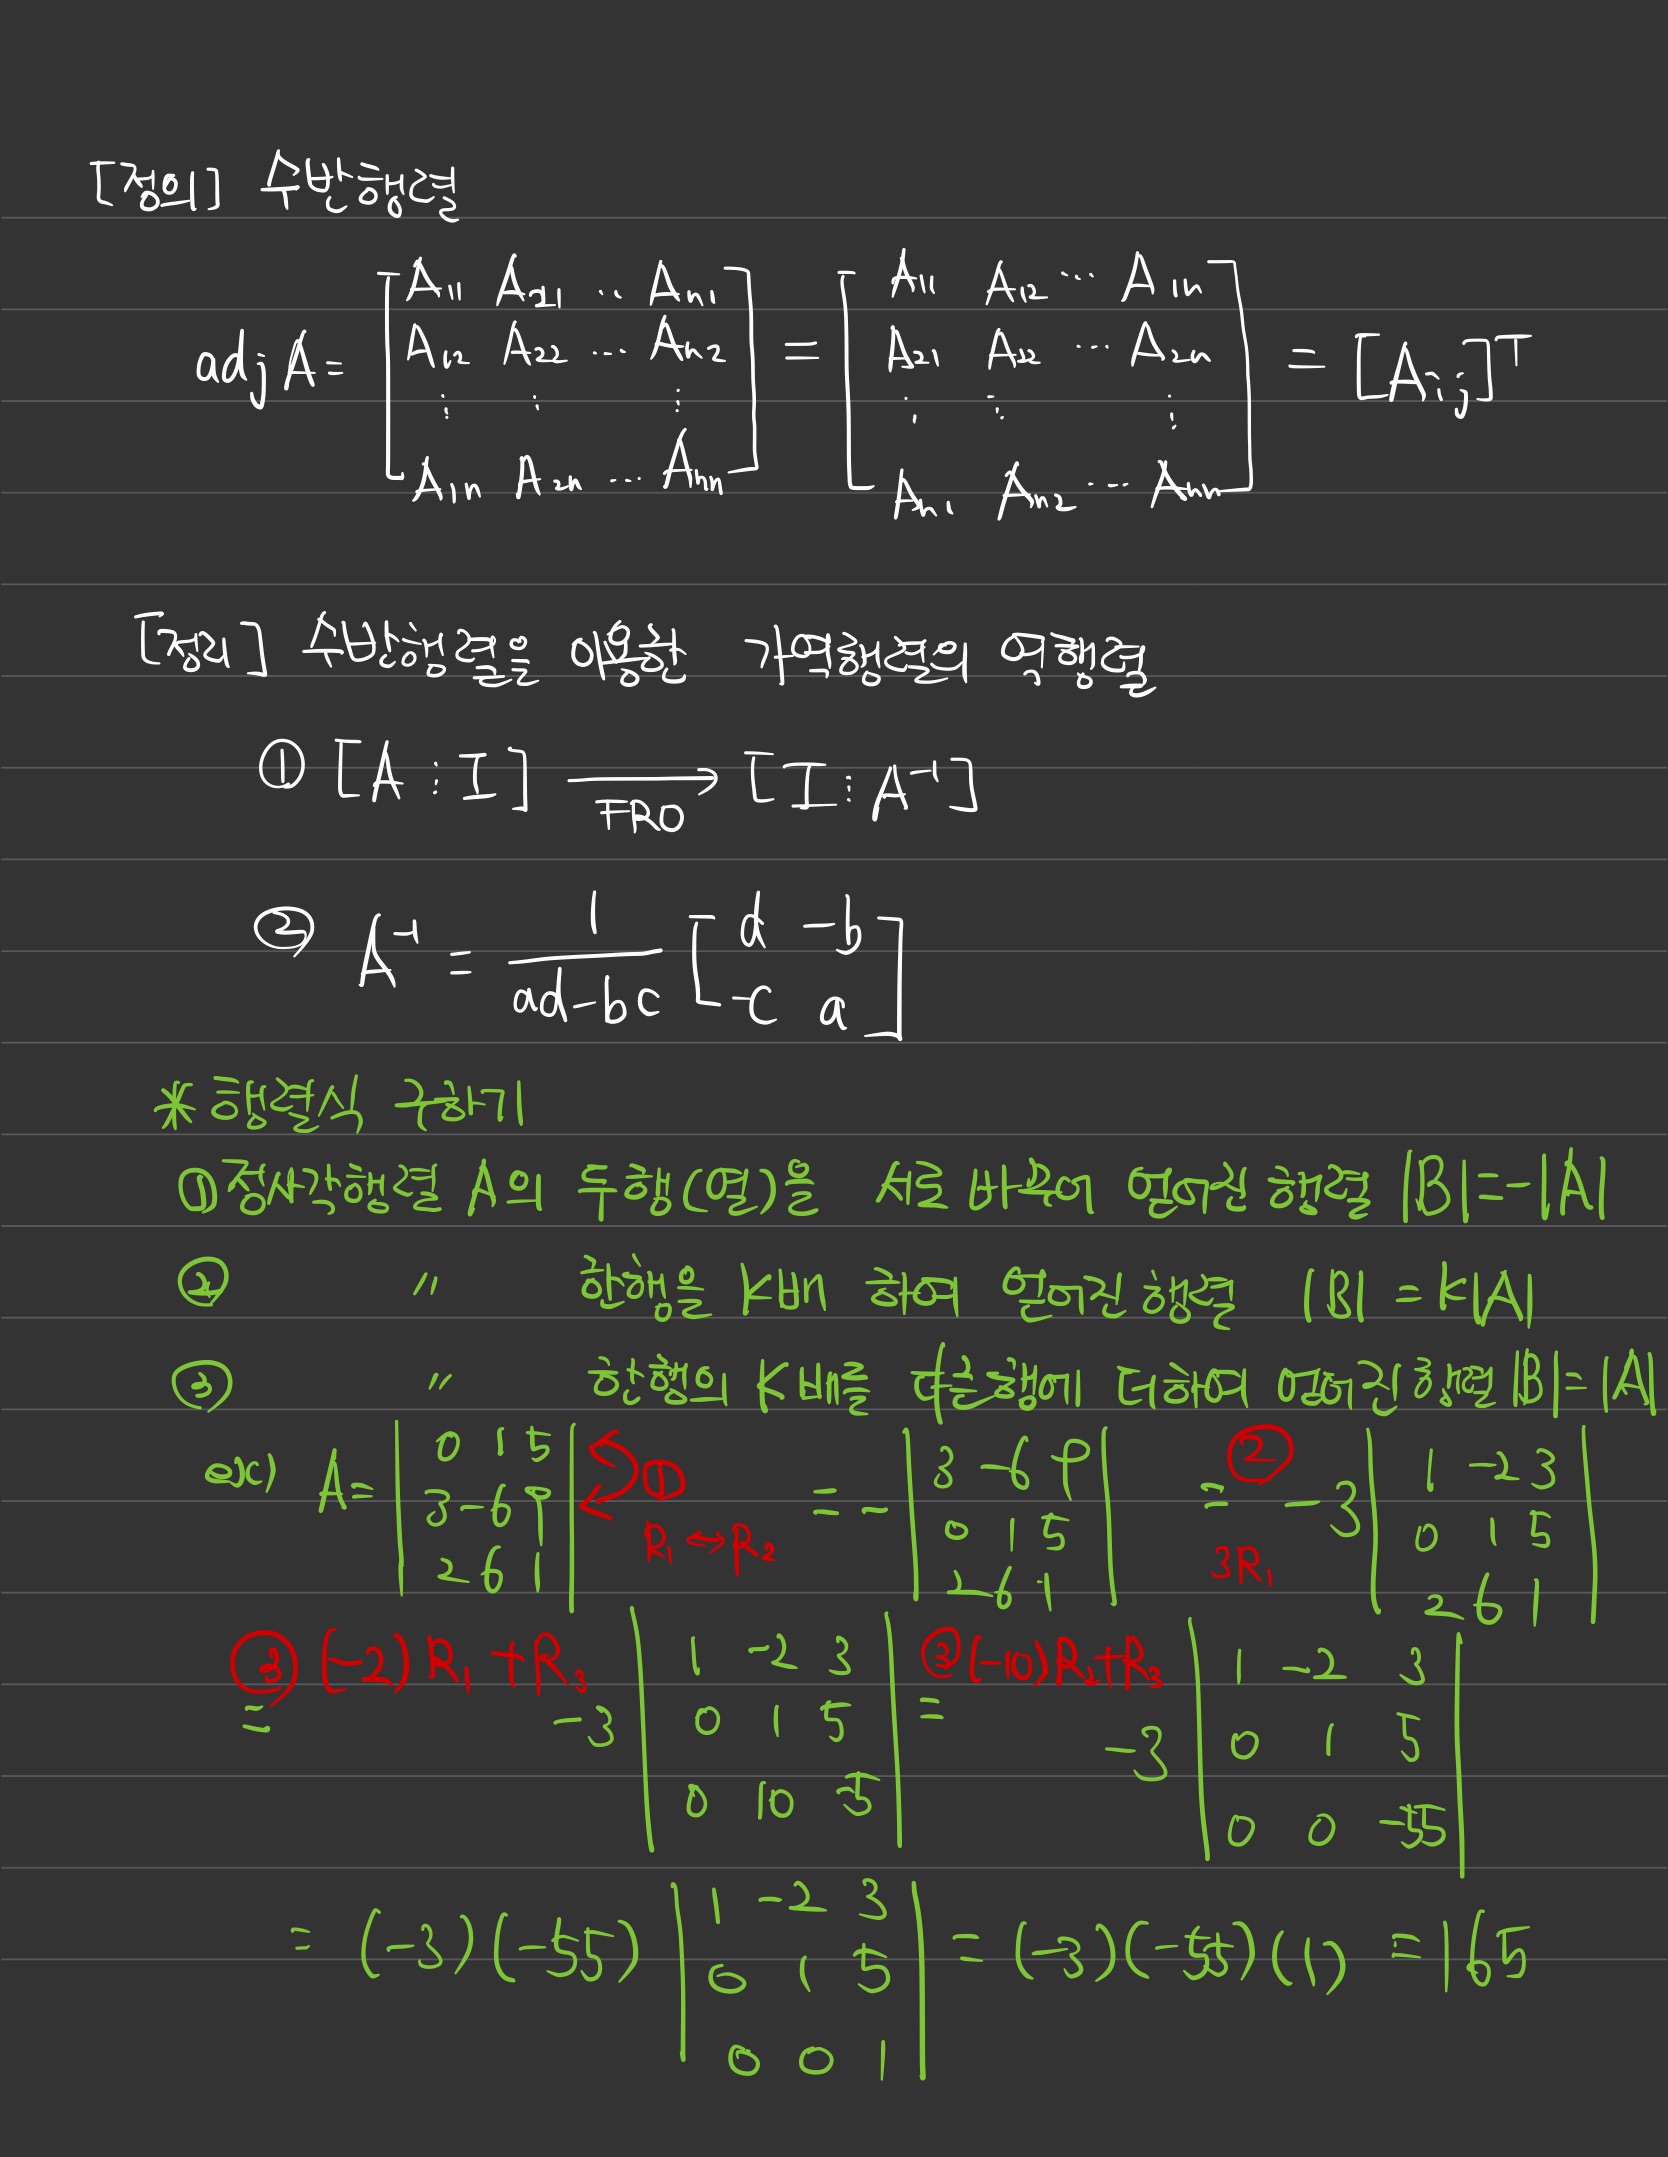 [정의] 수반행렬
adj A = [A₁₁ A₂₁ ‥ Aₙ₁; A₁₂ A₂₂ … Aₙ₂; ⋮ ⋮ ⋮; A₁ₙ A₂ₙ … Aₙₙ] = [A₁₁ A₁₂ … A₁ₙ; A₂₁ A₂₂ … A₂ₙ; ⋮ ⋮ ⋮; Aₙ₁ Aₙ₂ … Aₙₙ] = [Aᵢⱼ]ᵀ
[정리] 수반행렬을 이용한 가역행렬의 역행렬
① [A ⋮ I] → ERO [I ⋮ A⁻¹]
② A⁻¹ = 1/(ad-bc) [d -b; -c a]
* 행렬식 구하기
① 정사각행렬 A의 두행(열)을 서로 바꾸어 얻어진 행렬 |B|=-|A|
② 〃 한행을 K배 하여 얻어진 행렬 |B| = K|A|
③ 〃 한행의 K배를 다른행에 더하여 얻어진 행렬 |B|=|A|
ex) A= |0 1 5; 3 -6 9; 2 6 1| ① R₁↔R₂ = - |3 -6 9; 0 1 5; 2 6 1| ② = 3R₁ -3 |1 -2 3; 0 1 5; 2 6 1|
③ (-2)R₁+R₃ = -3 |1 -2 3; 0 1 5; 0 10 -5| ③ (-10)R₂+R₃ = -3 |1 -2 3; 0 1 5; 0 0 -55|
= (-3)(-55) |1 -2 3; 0 1 5; 0 0 1| = (-3)(-55)(1) = 165